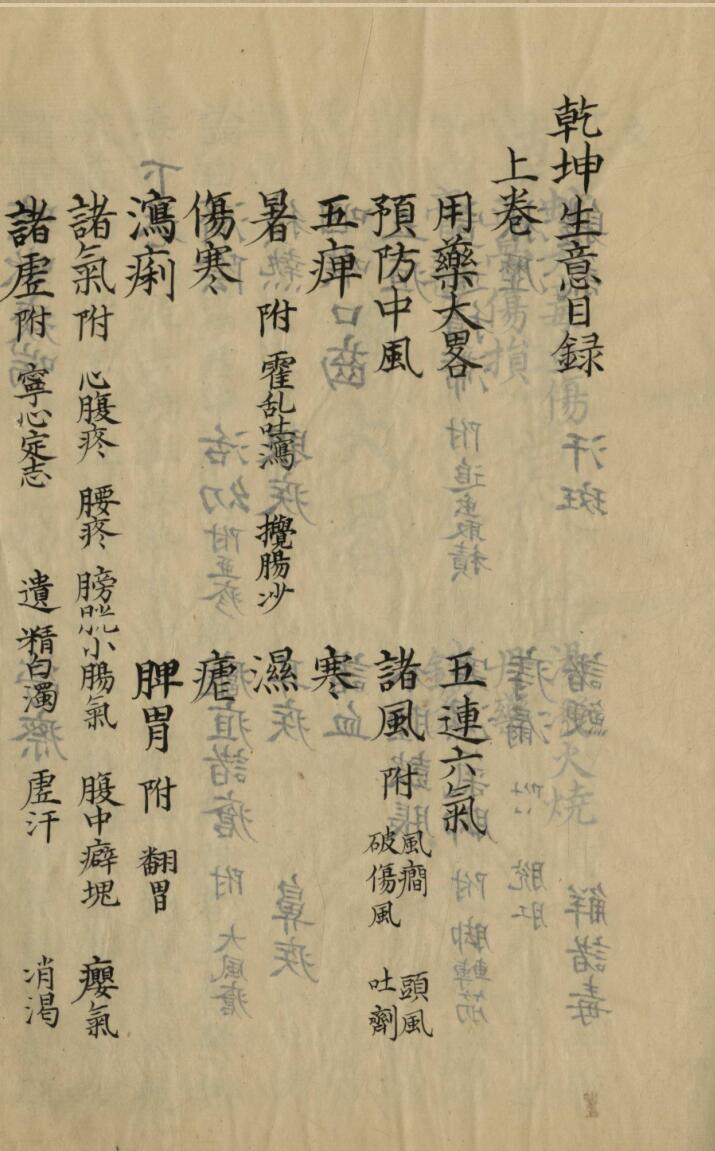 乾坤生意目録
上卷
用藥大畧 五連六氣
預防中風 諸風 附 風癇 破傷風 頭風 吐劑
五痺 寒
暑 附 霍乱吐瀉 攪腸沙 濕
傷寒 瘧
瀉痢 脾胃 附 翻胃
諸氣 附 心腹疼 腰疼 膀胱小腸氣 腹中癖塊 癭氣
諸虛 附 寧心定志 遺精白濁 虛汗 消渴